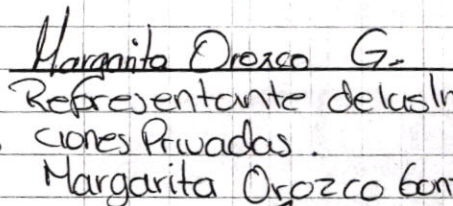 Margarita Orozco G.
Representante de las In
ciones Privadas.
Margarita Orozco Gon